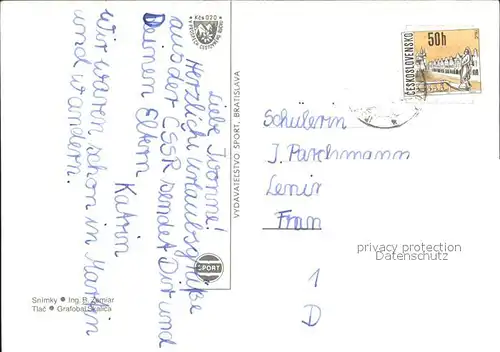 Liebe Ivonne!
Herzliche Urlaubsgrüße
aus der ČSSR sendet Dir und
Deinen Eltern
Katrin
Wir waren schon in Martin
und wandern.
Kčs 0,20
VYDAVATEĽSTVO ŠPORT, BRATISLAVA
ŠPORT
Snímky ● Ing. B. Zemiar
Tlač ● Grafobal Skalica
ČESKOSLOVENSKO
50h
Schülerin
J. Parchmann
Fran
1
D
privacy protection
Datenschutz